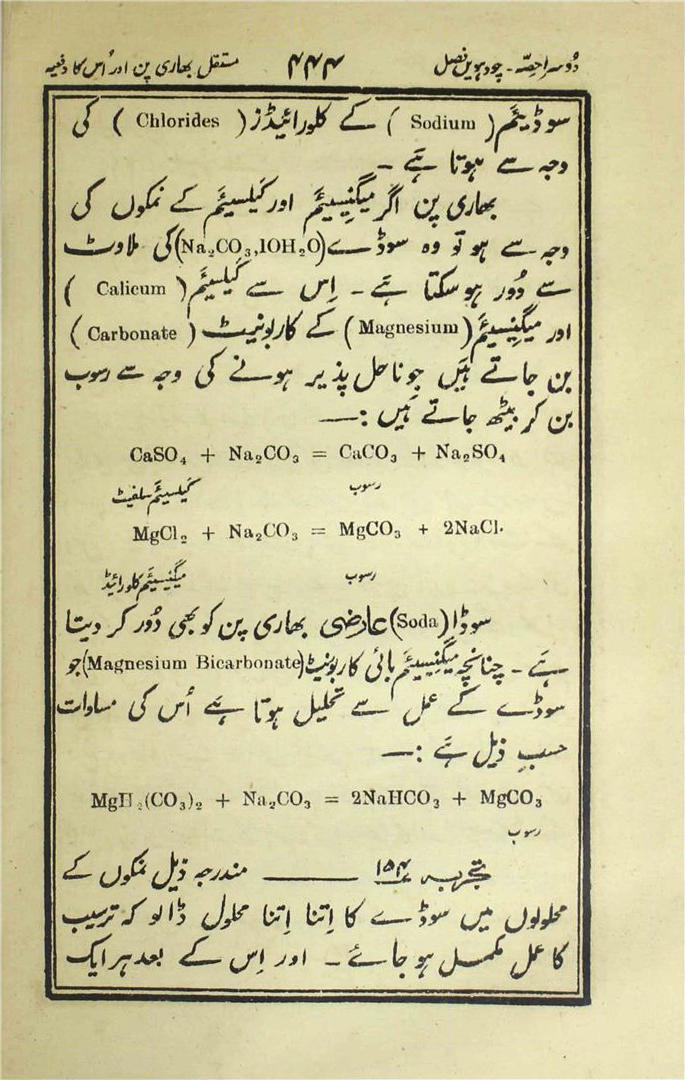 دُوسرا حِصّہ ۔ چودہویں فصل ۴۴۴ مستقل بھاری پن اور اُس کا دفعیہ
سوڈیئم ( Sodium ) کے کلورائیڈز ( Chlorides ) کی
وجہ سے ہوتا ہَے ۔
بھاری پن اگر میگنیسیئم اور کَیلسیئم کے نمکوں کی
وجہ سے ہو تو وہ سوڈے (Na₂CO₃,10H₂O) کی ملاوٹ
سے دُور ہو سکتا ہَے ۔ اِس سے کَیلسیئم ( Calicum )
اور میگنیسیئم ( Magnesium ) کے کاربونیٹ ( Carbonate )
بن جاتے ہَیں جو ناحل پذیر ہونے کی وجہ سے رسوب
بن کر بیٹھ جاتے ہَیں :—
CaSO₄ + Na₂CO₃ = CaCO₃ + Na₂SO₄
کَیلسیئم سلفیٹ رسوب
MgCl₂ + Na₂CO₃ = MgCO₃ + 2NaCl.
میگنیسیئم کلورائیڈ رسوب
سوڈا (Soda) عارضی بھاری پن کو بھی دُور کر دیتا
ہَے ۔ چنانچہ میگنیسیئم بائی کاربونیٹ (Magnesium Bicarbonate) جو
سوڈے کے عمل سے تحلیل ہوتا ہَے اُس کی مساوات
حسبِ ذیل ہَے :—
MgH₂(CO₃)₂ + Na₂CO₃ = 2NaHCO₃ + MgCO₃
رسوب
تجربہ ۱۵۴ —— مندرجہ ذیل نمکوں کے
محلولوں میں سوڈے کا اِتنا اِتنا محلول ڈالو کہ ترسیب
کا عمل مکمل ہو جائے ۔ اور اِس کے بعد ہر ایک